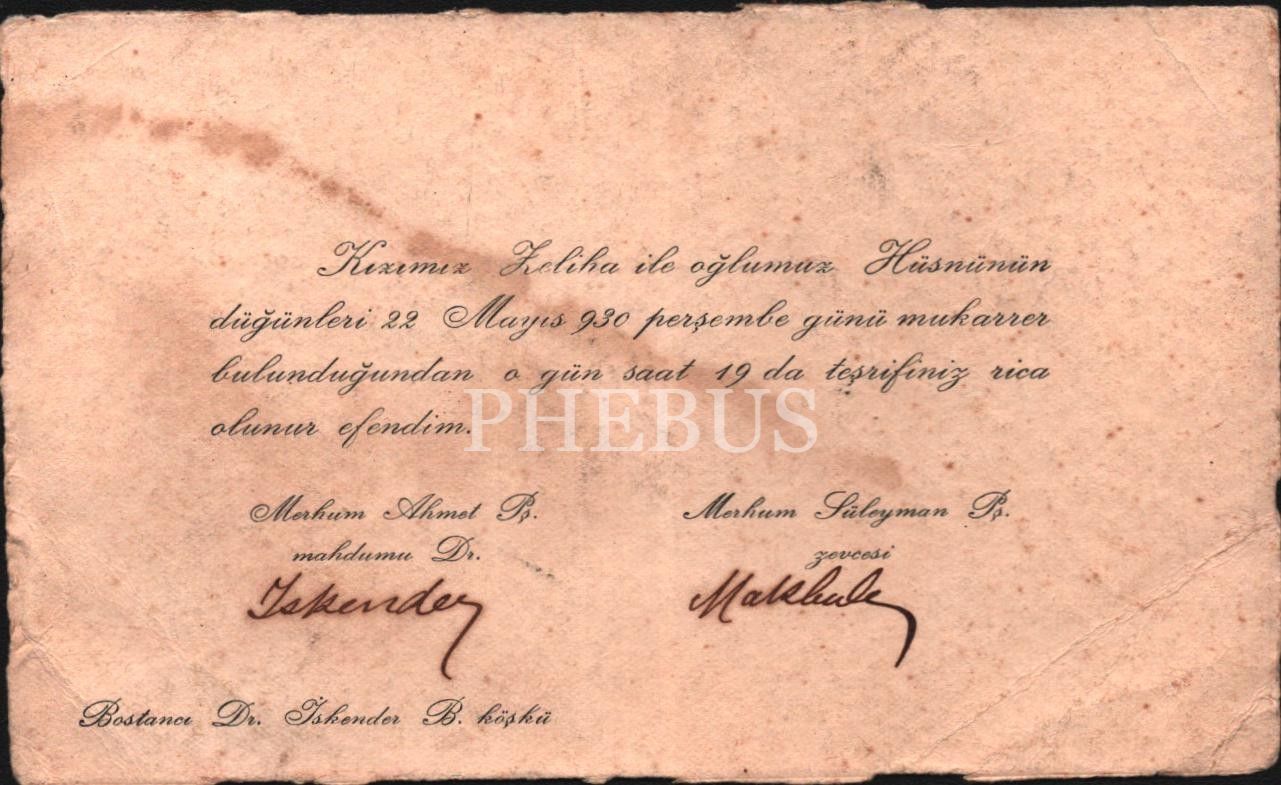 Kızımız Zeliha ile oğlumuz Hüsnünün
düğünleri 22 Mayıs 930 perşembe günü mukarrer
bulunduğundan o gün saat 19 da teşrifiniz rica
olunur efendim.
PHEBUS
Merhum Ahmet Pş.
mahdumu Dr.
Iskender
Merhum Süleyman Pş.
zevcesi
Makbule
Bostancı Dr. İskender B. köşkü